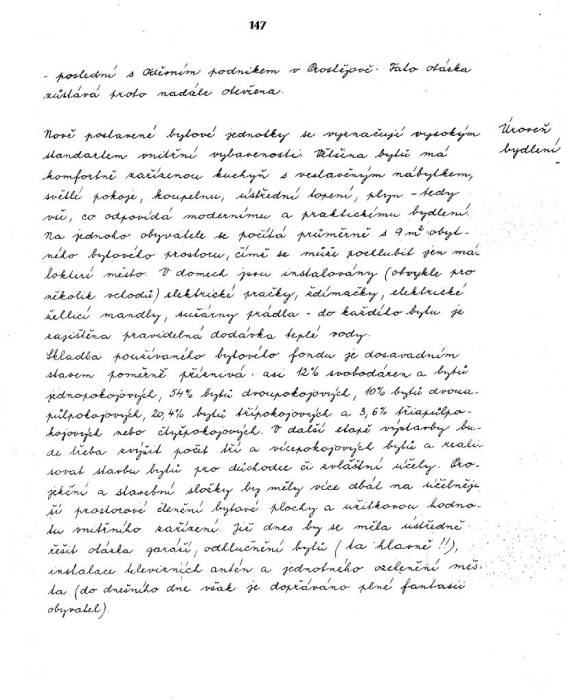 147
- poslední s Oděvním podnikem v Prostějově. Tato otázka
zůstává proto nadále otevřena.
Nově postavené bytové jednotky se vyznačují vysokým
standartem vnitřní vybavenosti. Většina bytů má
komfortně zařízenou kuchyň s vestavěným nábytkem,
světlé pokoje, koupelnu, ústřední topení, plyn - tedy
vše, co odpovídá modernímu a praktickému bydlení.
Na jednoho obyvatele se počítá průměrně s 9 m² obyt-
ného bytového prostoru, čímž se může pochlubit jen má-
lokteré město. V domech jsou instalovány (obvykle pro
několik vchodů) elektrické pračky, ždímačky, elektrické
žehlící mandly, sušárny prádla - do každého bytu je
zajištěna pravidelná dodávka teplé vody.
Skladba používaného bytového fondu je dosavadním
stavem poměrně příznivá: asi 12% svobodáren a bytů
jednopokojových, 54% bytů dvoupokojových, 10% bytů dvoua-
půlpokojových, 20,4% bytů třípokojových a 3,6% třiapůlpo-
kojových nebo čtyřpokojových. V další etapě výstavby bu-
de třeba zvýšit počet tří a vícepokojových bytů a reali-
zovat stavbu bytů pro důchodce či zvláštní účely. Pro-
jekční a stavební složky by měly více dbát na účelněj-
ší prostorové členění bytové plochy a užitkovou hodno-
tu vnitřního zařízení. Již dnes by se měla ústředně
řešit otázka garáží, odhlučnění bytů (ta hlavně!!),
instalace televizních antén a jednotného ozelenění měs-
ta (do dnešního dne však je dopřáváno plné fantasii
obyvatel).
Úroveň
bydlení